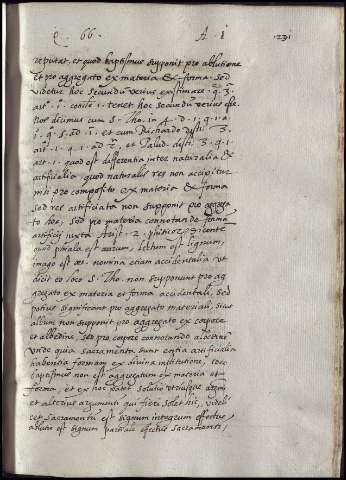 q. 66. A. i 231
reputat, et quod baptismus supponit pro ablutione
et pro aggregato ex materia & forma. sed
videtur hoc secundū verius existimare. q. 3.
artº. iº. conītr 1. tenet hoc secundū verius esse
nos dicimus cum S. Tho. in 4. d. 1. q. 1. a
et cum Richardo disti. 3.
art. 1. q. 1. ad et Palud. disti. 3. q. 1
art. 1. quod est differentia inter naturalia &
artificialia, quod naturalis res non accipitur
nisi pro composito ex materia & forma
sed res artificiato non supponit pro aggrega
to hoc, sed pro materia connotando forma
artificij iuxta Arist. 2. phisicor. dicentē
quod phiala est aurum, lectum est lignum,
imago est æs. nomina etiam accidentalia ut
dicit eo loco S. Tho. non supponunt pro ag
gregato ex materia et forma accidentali, sed
potius significant pro aggregato materiali, sicut
album non supponit pro aggregato ex corpore
et albedine, sed pro corpore connotando albedinē
unde quia sacramenta sunt entia artificialia
habentia formam ex divina institutione, ideo
baptismus non est aggregatum ex materia et
forma, et ex hoc patet solutio utriusque
et alterius argumenti qui fieri solet hic, videli
cet sacramentū est signum integrum effectus,
ablutio est signum partiale effectus sacramenti,